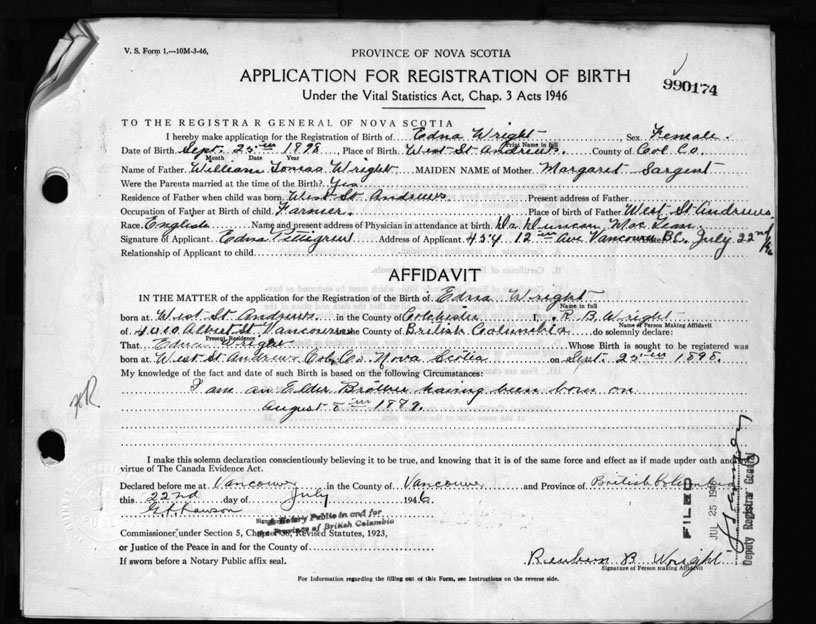 V. S. Form 1.—10M-3-46,
PROVINCE OF NOVA SCOTIA
APPLICATION FOR REGISTRATION OF BIRTH
990174
Under the Vital Statistics Act, Chap. 3 Acts 1946
TO THE REGISTRAR GENERAL OF NOVA SCOTIA
I hereby make application for the Registration of Birth of Edna Wright Sex Female.
Print Name in full
Date of Birth Sept. 25th 1898 Place of Birth West St Andrews County of Col. Co.
Month Date Year
Name of Father William Wright MAIDEN NAME of Mother Margaret Sargent
Were the Parents married at the time of the Birth? Yes
Residence of Father when child was born West St Andrews Present address of Father
Occupation of Father at Birth of child Farmer. Place of birth of Father West St Andrews
Race English Name and present address of Physician in attendance at birth Dr Duncan Mac Lean
Signature of Applicant Edna Pettigrew Address of Applicant 454 12th Ave Vancouver B.C. July 22nd
Relationship of Applicant to child
AFFIDAVIT
IN THE MATTER of the application for the Registration of the Birth of Edna Wright
Name in full
born at West St Andrews in the County of Colchester I, R B Wright
Name of Person Making Affidavit
of 4010 Albert St Vancouver in the County of British Columbia do solemnly declare:
Present Residence
That Edna Wright Whose Birth is sought to be registered was
born at West St Andrews Col. Co. Nova Scotia on Sept. 25th 1898.
My knowledge of the fact and date of such Birth is based on the following Circumstances:
I am an Elder Brother having been born on
August 8th 1889.
I make this solemn declaration conscientiously believing it to be true, and knowing that it is of the same force and effect as if made under oath and by
virtue of The Canada Evidence Act.
Declared before me at Vancouver in the County of Vancouver and Province of British Columbia
this 22nd day of July 1946
G. Lawson
A Notary Public in and for
the Province of British Columbia
Commissioner under Section 5, Chapter 38, Revised Statutes, 1923,
or Justice of the Peace in and for the County of
If sworn before a Notary Public affix seal.
Reuben B Wright
Signature of Person making Affidavit
For Information regarding the filling out of this Form, see Instructions on the reverse side.
FILED
JUL 25 194
Deputy Registrar General